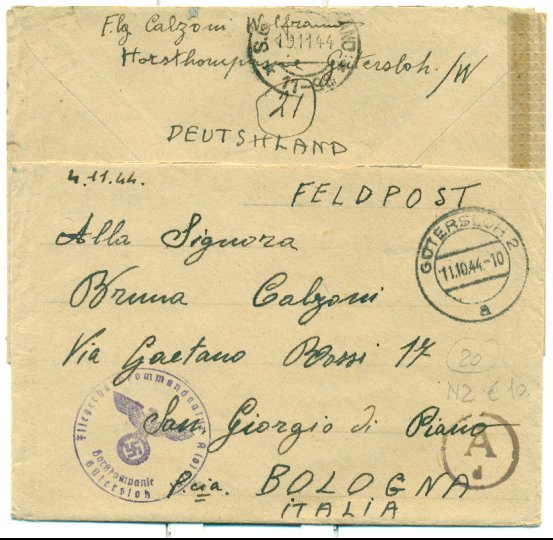 Flg Calzoni Wolframo
Horstkompanie Gütersloh /W
19.11.44
21
DEUTSHLAND
4.11.44.
FELDPOST
GÜTERSLOH 2
11.10.44.-10
a
Alla Signora
Bruna Calzoni
Via Gaetano Rossi 17
20
N2 € 10.
San Giorgio di Piano
A
d
P.cia. BOLOGNA
ITALIA
Gütersloh